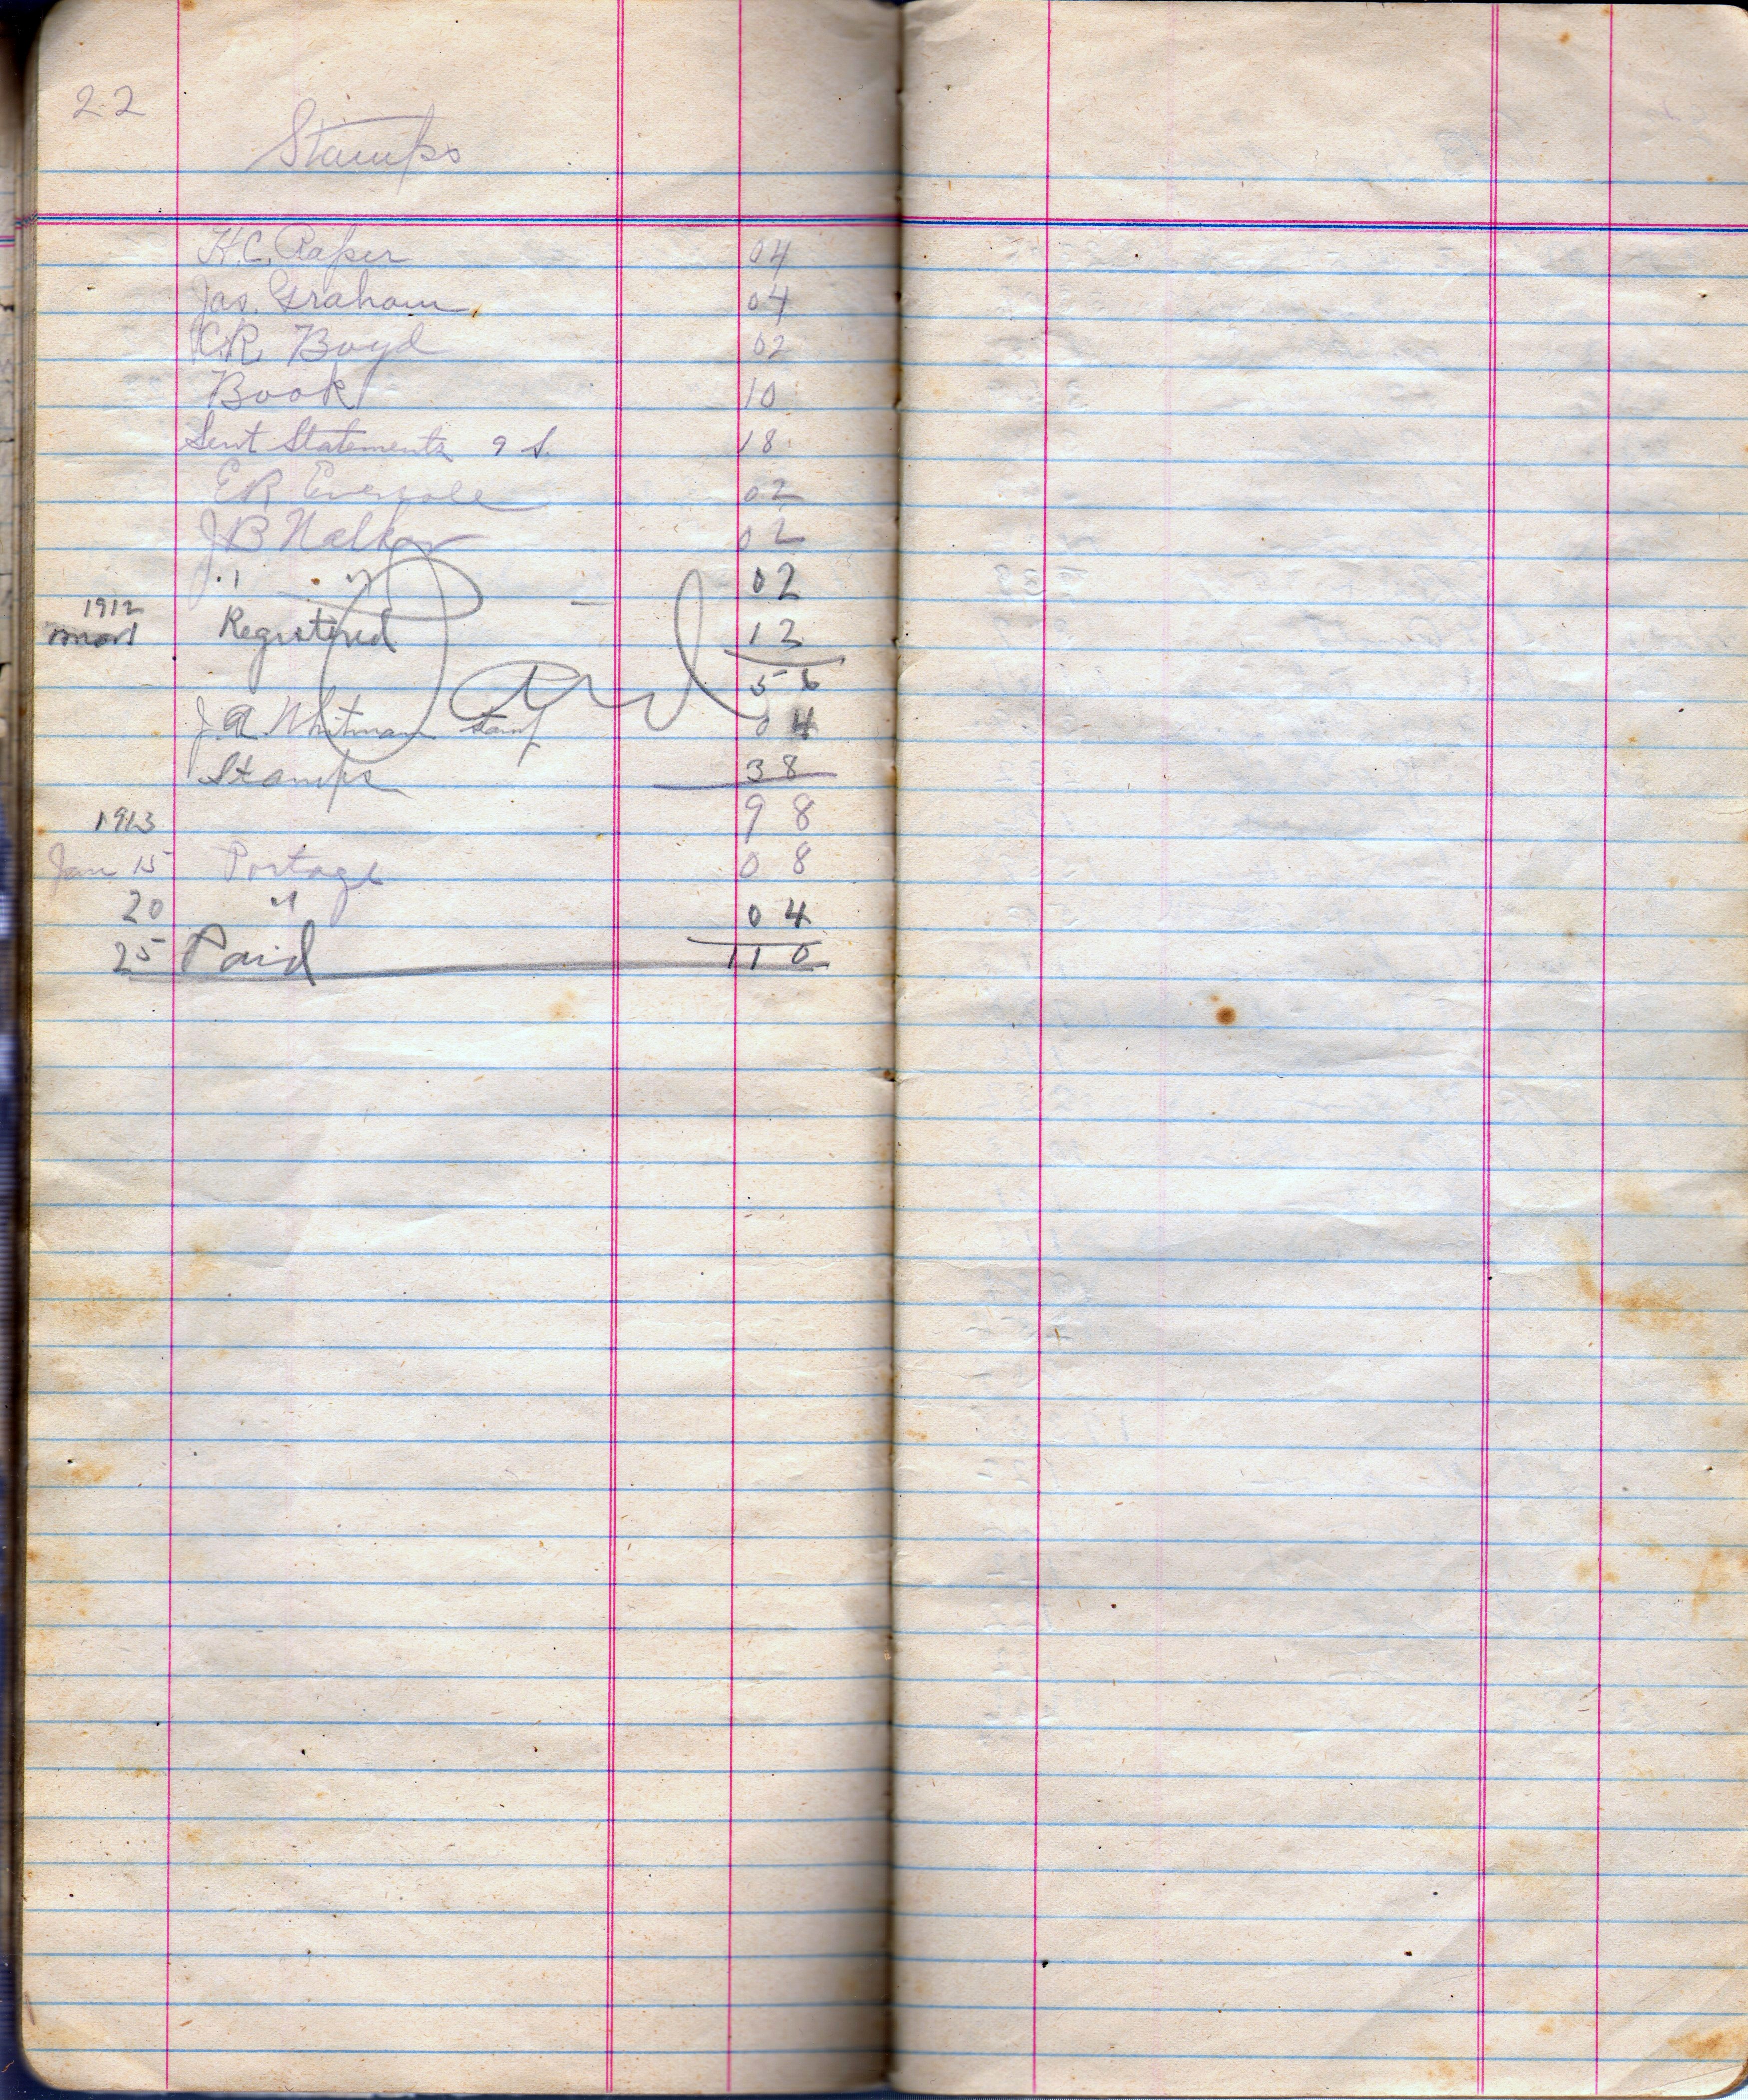 22
Stamps
H.C. Raper 04
Jas. Graham 04
C.R. Boyd 02
Book 10
Sent Statements 9 S. 18
E R Eversole 02
J B Walker 02
" " 02
1912
Mar 1 Registered 12
Paid
56
J. A. Whitman Stamp 04
Stamps 38
98
1913
Jan 15 Postage 08
20 " 04
25 Paid 110